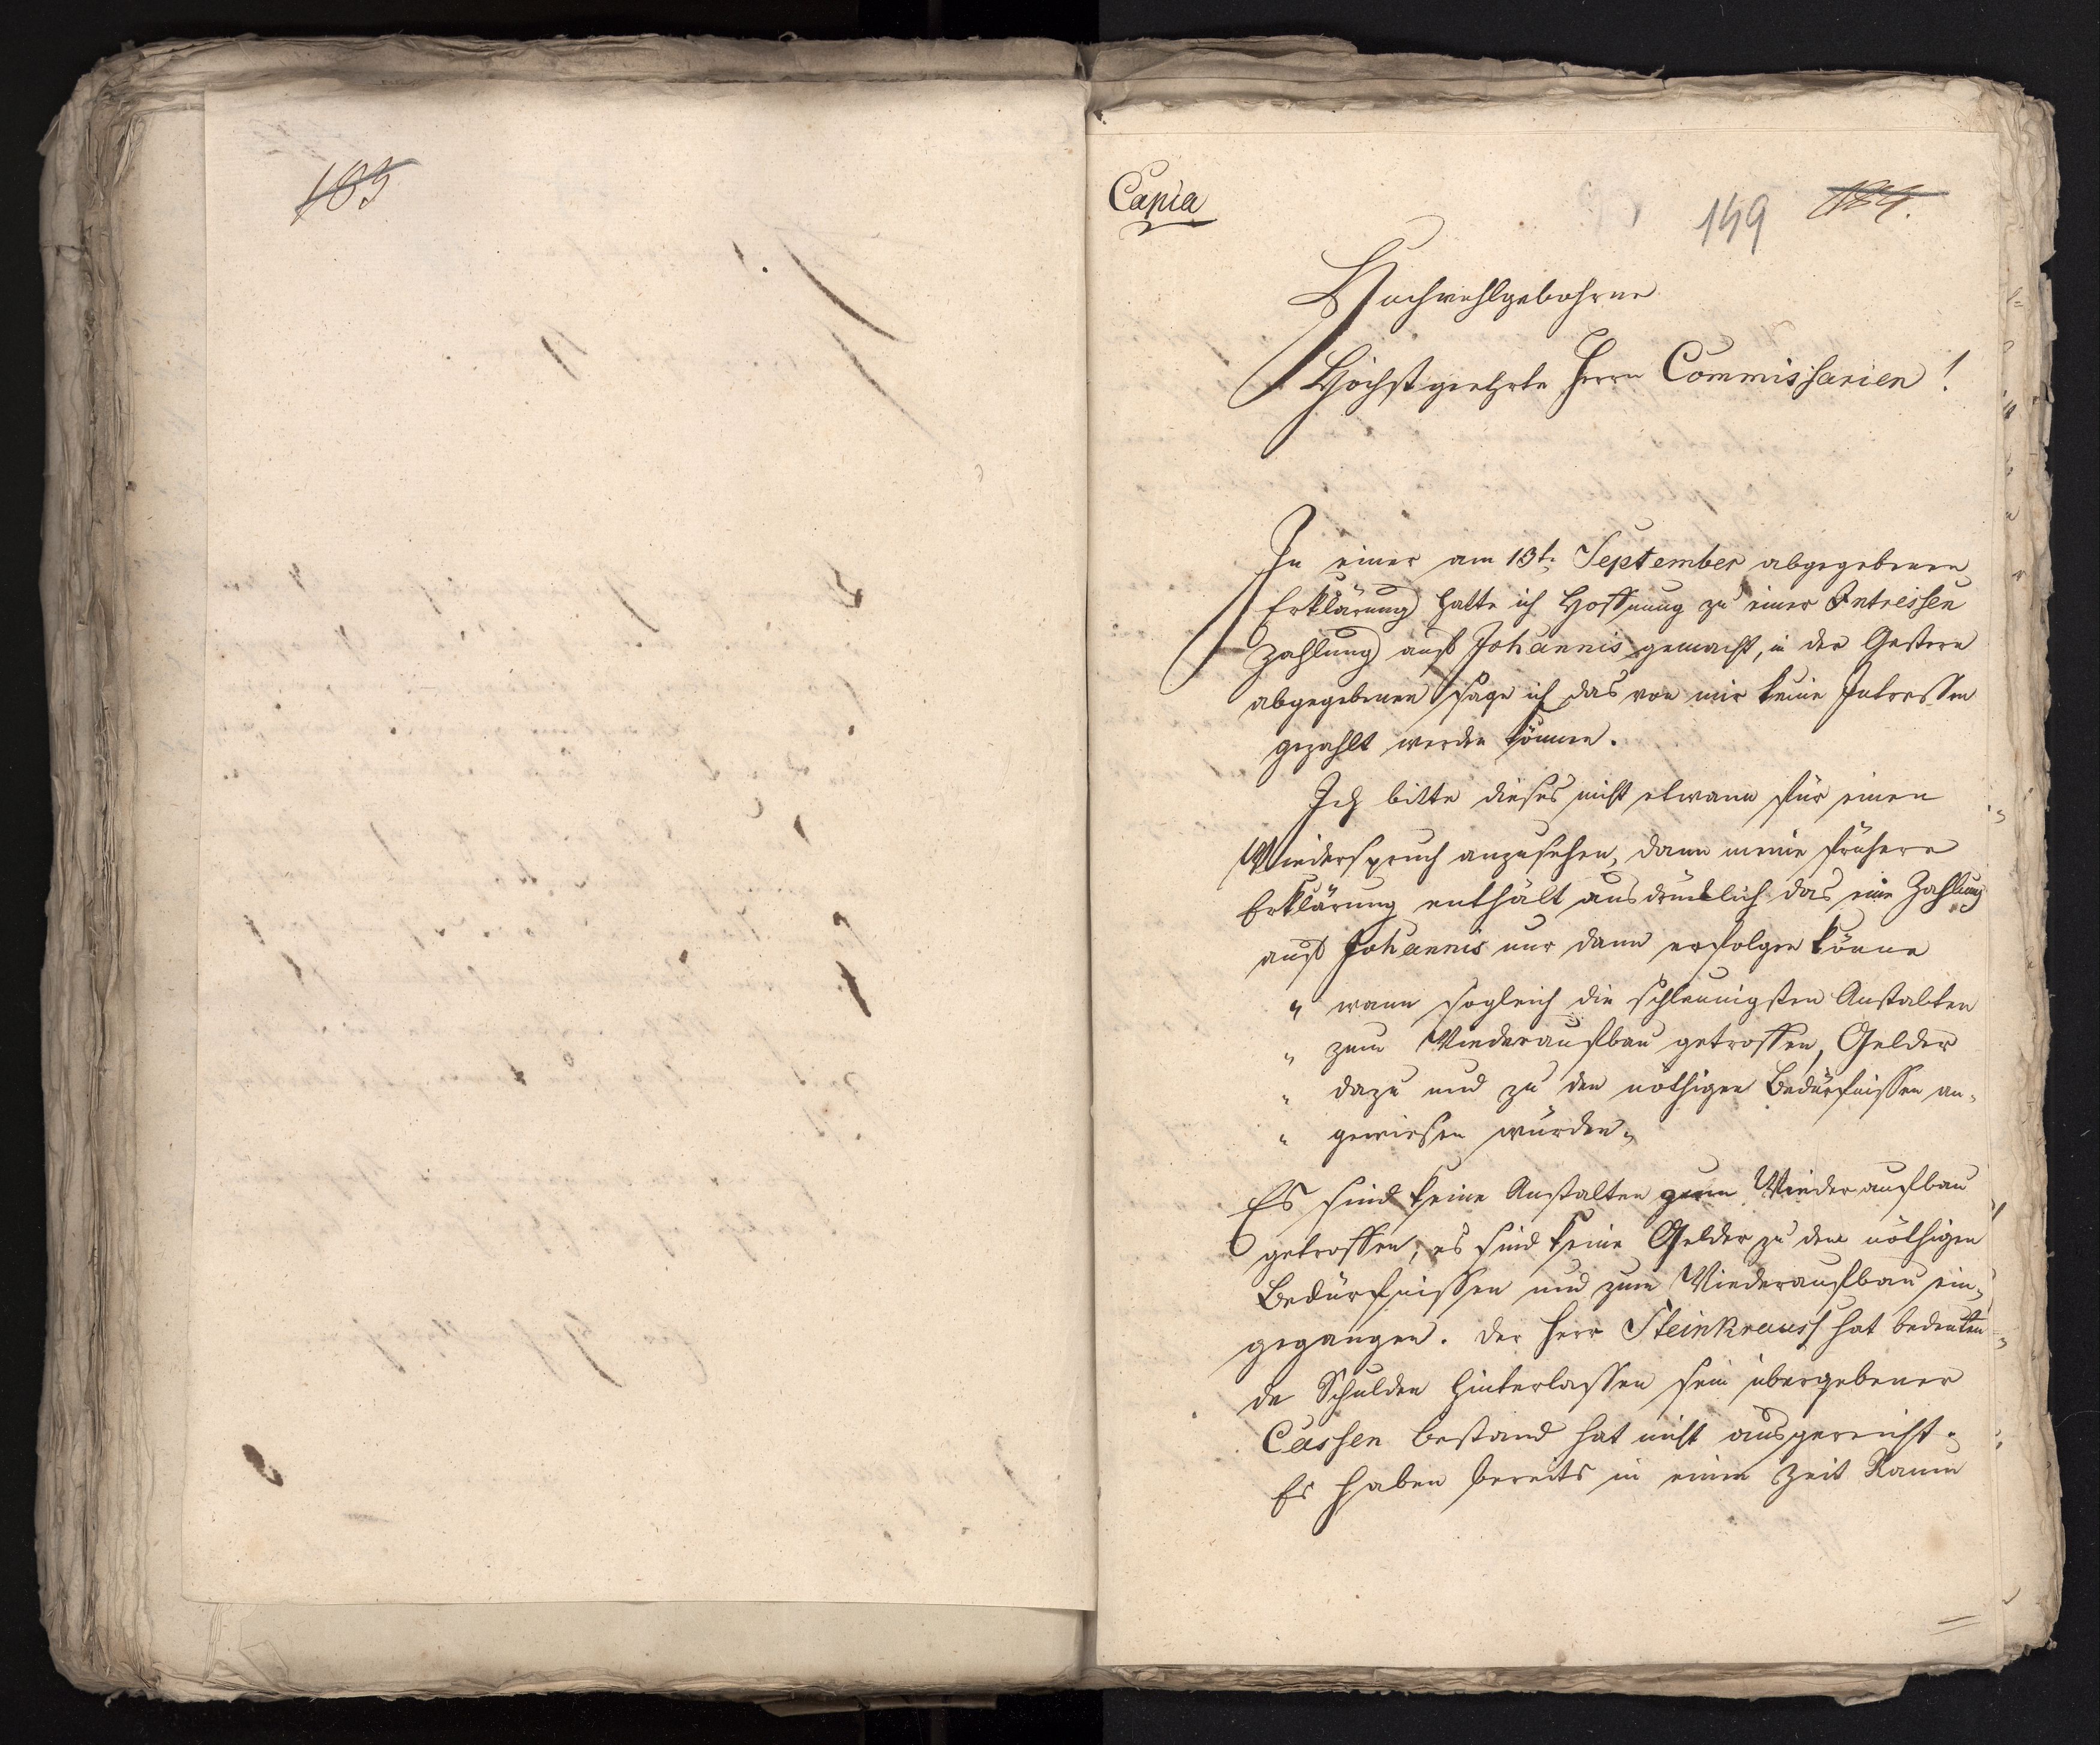 183
Copia
149 184.
Hochwohlgebohrne
Höchstgeehrte Herrn Commissarien!
In einer am 13t. September abgegebenen
Erklärung hatte ich Hoffnung zu einer Intressen
Zahlung auf Johannis gemacht, in der Gestern
abgegebenen sage ich das von mir keine Intressen
gezahlt werden können.
Ich bitte dieses nicht etwann für einen
Wiederspruch anzusehen, dann meine frühere
Erklärung enthält ausdrücklich das eine Zahlung
auf Johannis nur dann erfolgen könne
„ wann sogleich die schleunigsten Anstalten
„ zum Wiederaufbau getroffen, Gelder
„ dazu und zu den nöthigen Bedürfnissen an-
„ gewiesen würden„
Es sind keine Anstalten zum Wiederaufbau
getroffen, es sind keine Gelder zu den nöthigen
Bedürfnissen und zum Wiederaufbau ein-
gegangen. Der Herr Steinkrauss hat bedeuten-
de Schulden hinterlassen sein übergebener
Cassen bestand hat nicht ausgereicht.
Es haben bereits in einem Zeit Raum